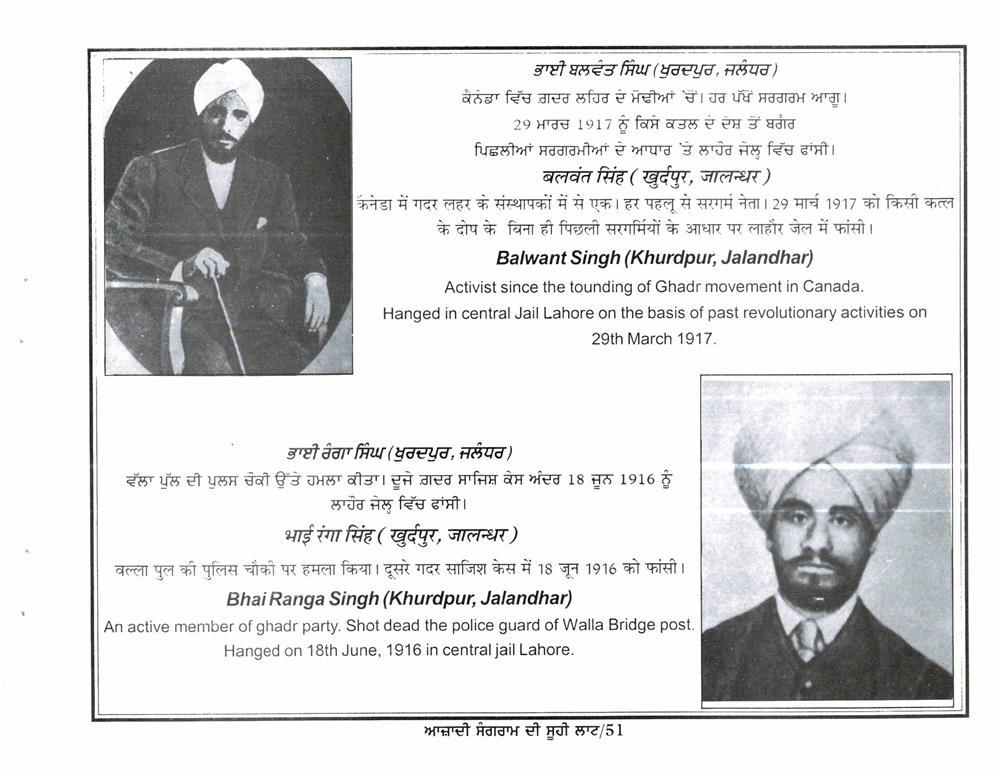 ਭਾਈ ਬਲਵੰਤ ਸਿੰਘ (ਖੁਰਦਪੁਰ, ਜਲੰਧਰ)
ਕੈਨੇਡਾ ਵਿੱਚ ਗ਼ਦਰ ਲਹਿਰ ਦੇ ਮੋਢੀਆਂ 'ਚੋਂ। ਹਰ ਪੱਖੋਂ ਸਰਗਰਮ ਆਗੂ।
29 ਮਾਰਚ 1917 ਨੂੰ ਕਿਸੇ ਕਤਲ ਦੇ ਦੋਸ਼ ਤੋਂ ਬਗੈਰ
ਪਿਛਲੀਆਂ ਸਰਗਰਮੀਆਂ ਦੇ ਆਧਾਰ 'ਤੇ ਲਾਹੌਰ ਜੇਲ੍ਹ ਵਿੱਚ ਫਾਂਸੀ।
बलवंत सिंह ( खुर्दपुर, जालन्धर )
कैनेडा में गदर लहर के संस्थापकों में से एक। हर पहलू से सरगर्म नेता। 29 मार्च 1917 को किसी कत्ल
के दोष के बिना ही पिछली सरगर्मियों के आधार पर लाहौर जेल में फांसी।
Balwant Singh (Khurdpur, Jalandhar)
Activist since the tounding of Ghadr movement in Canada.
Hanged in central Jail Lahore on the basis of past revolutionary activities on
29th March 1917.
ਭਾਈ ਰੰਗਾ ਸਿੰਘ (ਖੁਰਦਪੁਰ, ਜਲੰਧਰ)
ਵੱਲਾ ਪੁੱਲ ਦੀ ਪੁਲਸ ਚੌਕੀ ਉੱਤੇ ਹਮਲਾ ਕੀਤਾ। ਦੂਜੇ ਗ਼ਦਰ ਸਾਜਿਸ਼ ਕੇਸ ਅੰਦਰ 18 ਜੂਨ 1916 ਨੂੰ
ਲਾਹੌਰ ਜੇਲ੍ਹ ਵਿੱਚ ਫਾਂਸੀ।
भाई रंगा सिंह ( खुर्दपुर, जालन्धर )
वल्ला पुल की पुलिस चौकी पर हमला किया। दूसरे गदर साजिश केस में 18 जून 1916 को फांसी।
Bhai Ranga Singh (Khurdpur, Jalandhar)
An active member of ghadr party. Shot dead the police guard of Walla Bridge post.
Hanged on 18th June, 1916 in central jail Lahore.
ਆਜ਼ਾਦੀ ਸੰਗਰਾਮ ਦੀ ਸੂਹੀ ਲਾਟ/51